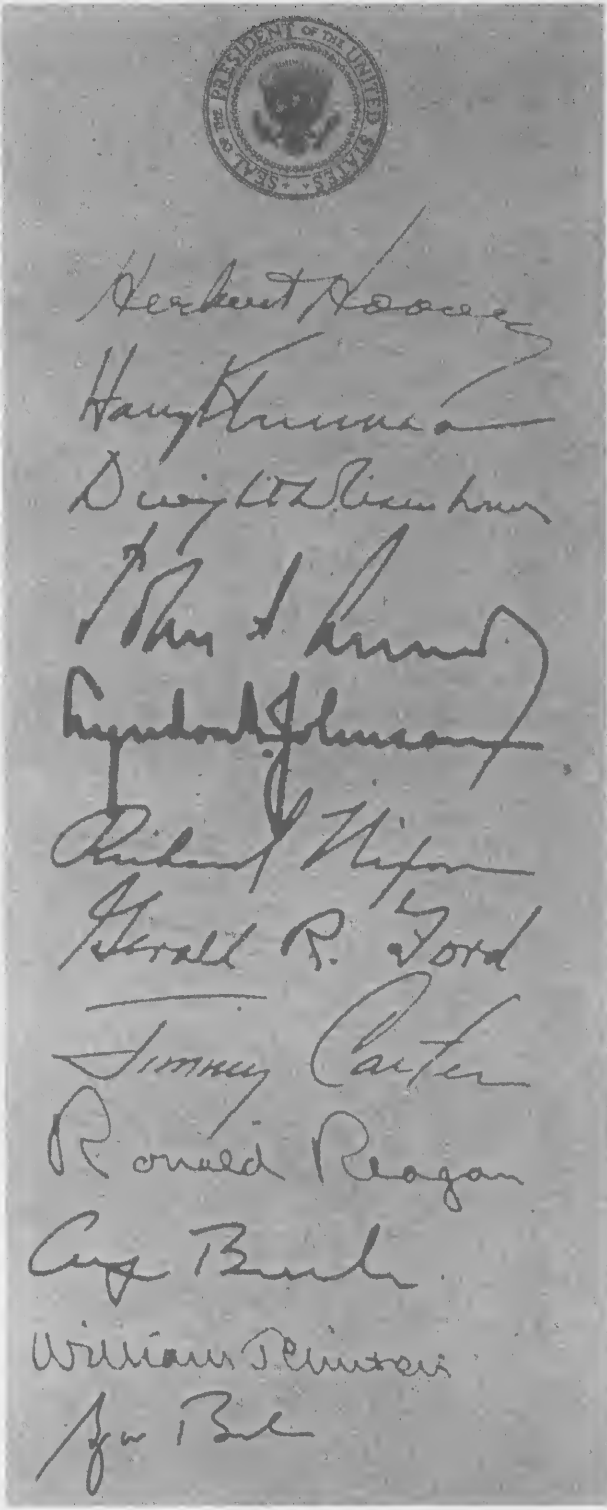 SEAL OF THE PRESIDENT OF THE UNITED STATES
Herbert Hoover
Harry S Truman
Dwight D Eisenhower
John F. Kennedy
Lyndon B. Johnson
Richard Nixon
Gerald R. Ford
Jimmy Carter
Ronald Reagan
George Bush
William J Clinton
George W Bush